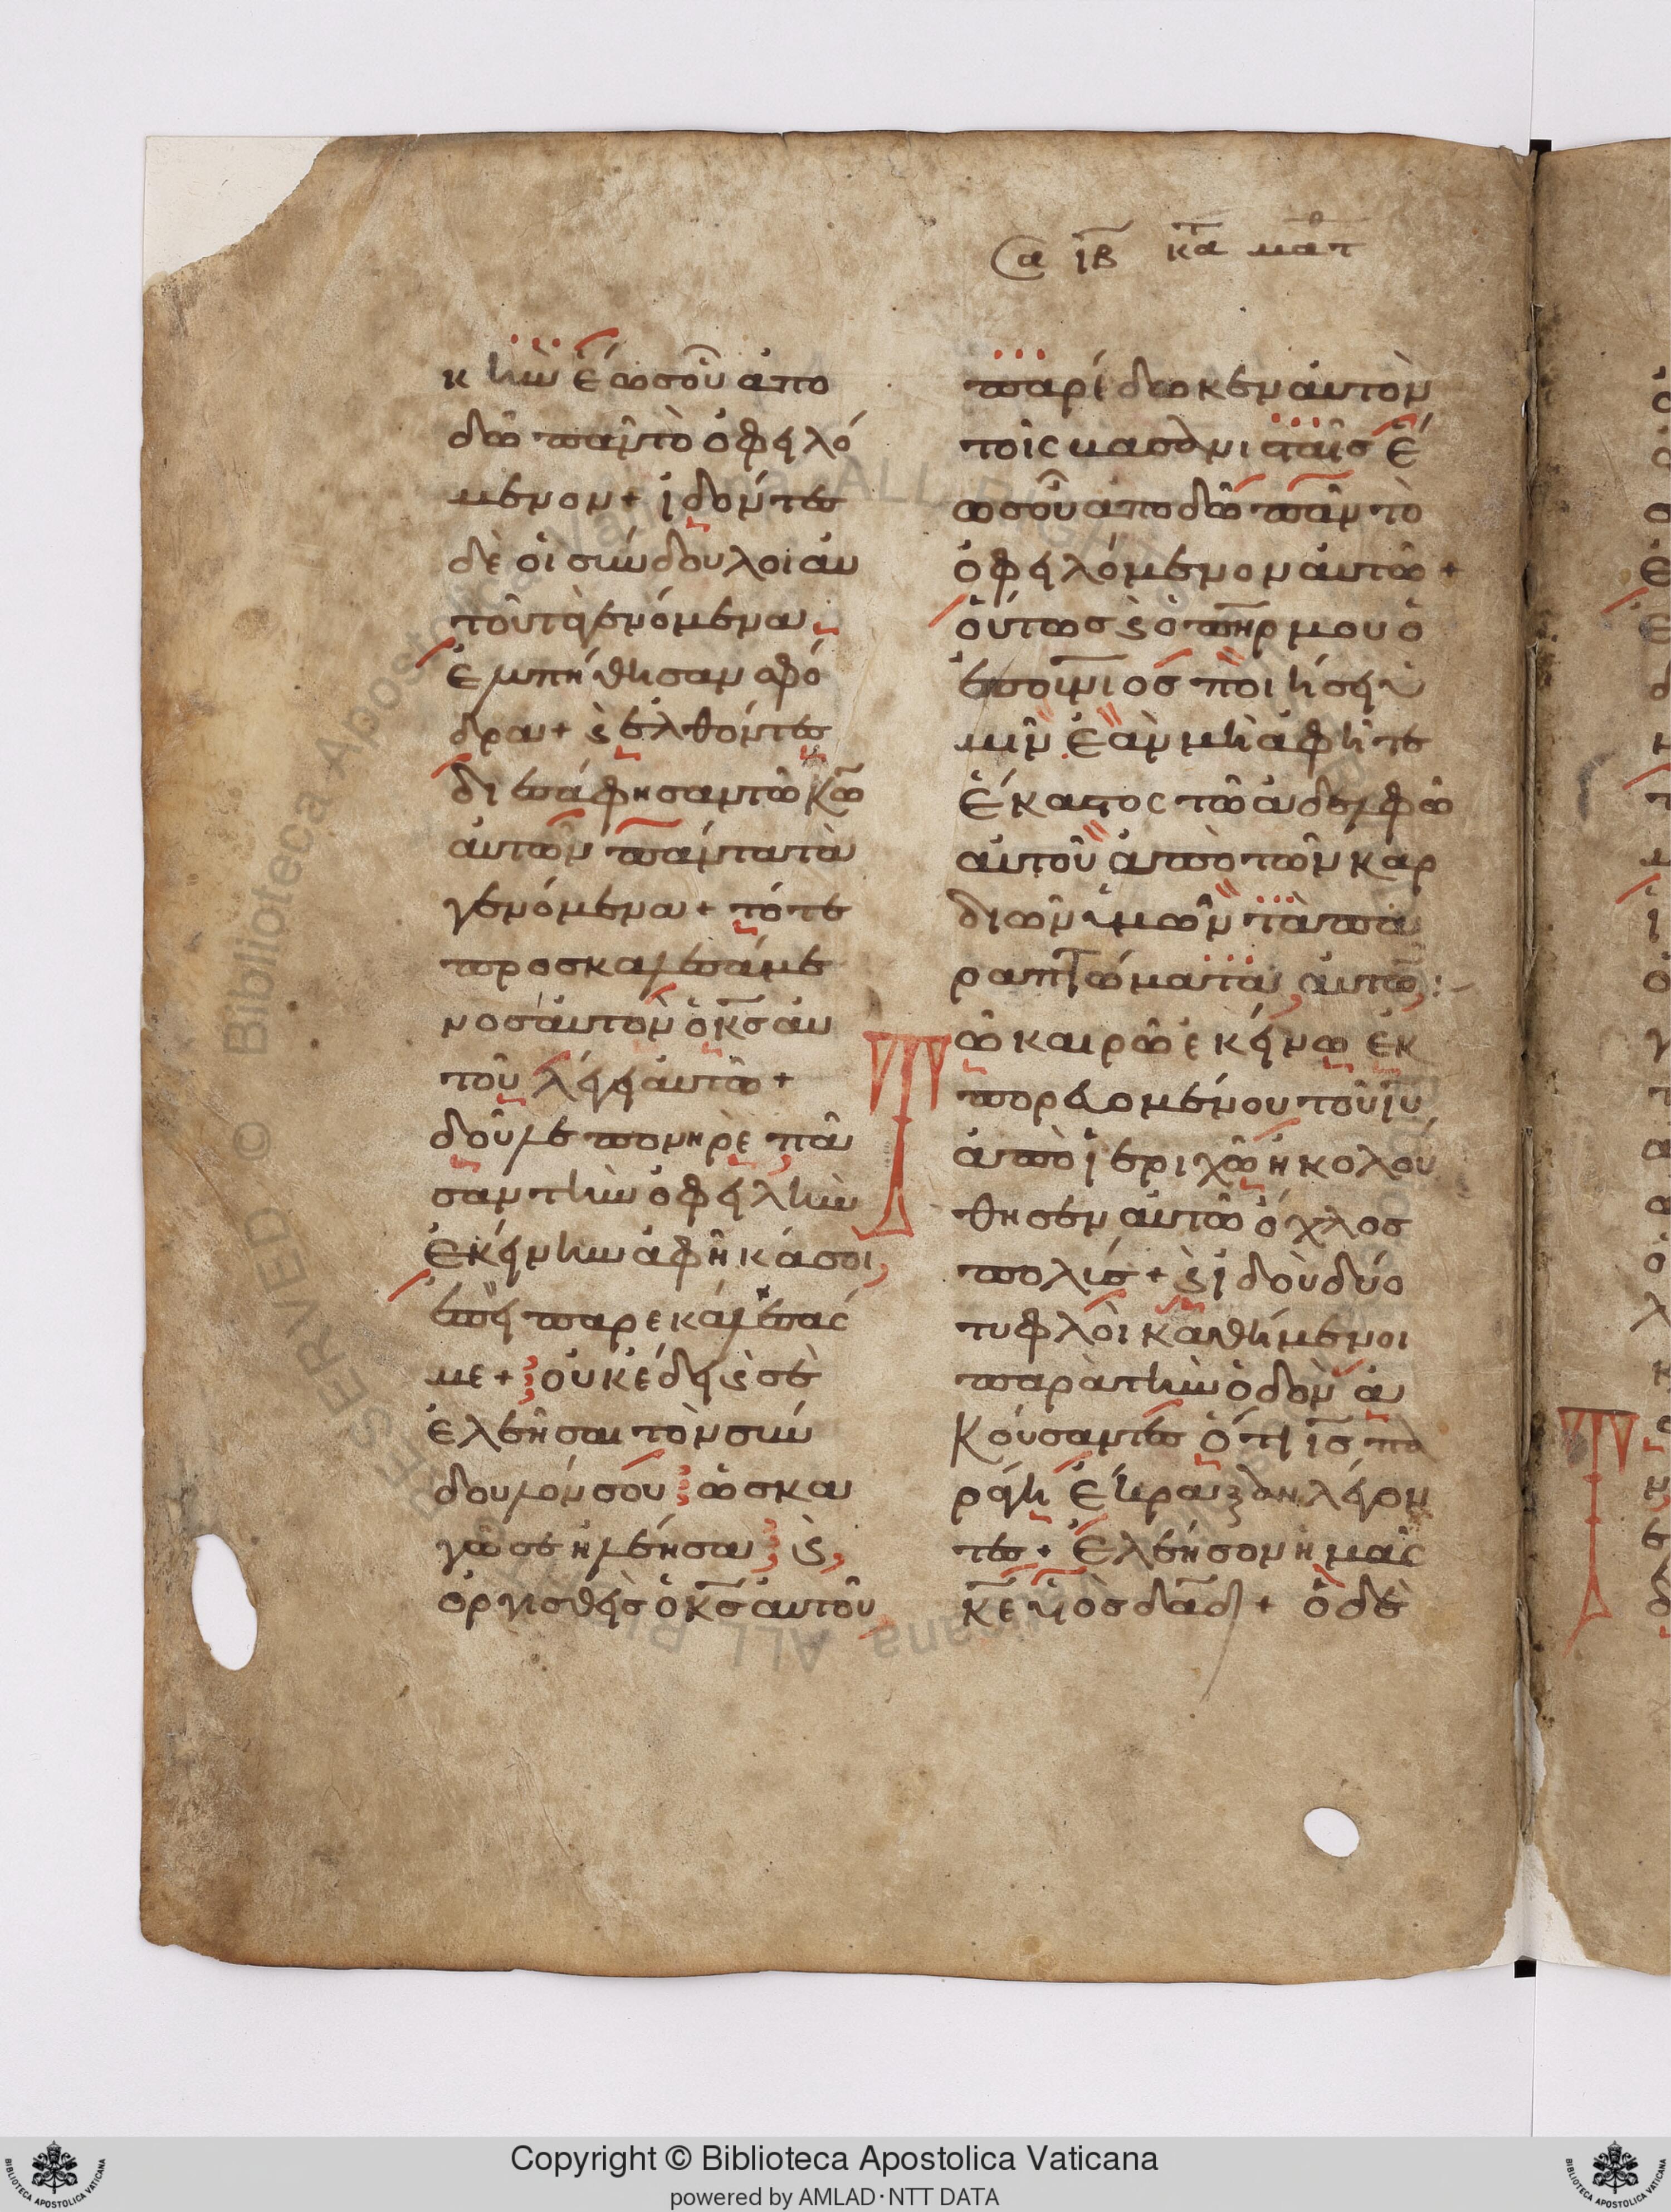 Σα ιβ κτ̅α ματθ
κην ἕωσοῦ ἀπο
δῶ παντὸ ὀφειλό
μενον + ἰδόντες
δὲ οἱ σύνδουλοι αὐ
τοῦ τὰ γενόμενα
ἐλυπήθησαν σφό
δρα + ϗ ἐλθόντες
διεσάφησαν τῶ κω̅
αὐτῶν πάντα τὰ
γενόμενα + τότε
προσκαλεσάμε
νος αὐτὸν ὁ κ̅ς αὐ
τοῦ λέγει αὐτῶ +
δοῦλε πονηρὲ πᾶ
σαν τὴν ὀφειλὴν
ἐκείνην ἀφῆκά σοι
ἐπεὶ παρεκάλεσάς
με + οὐκ ἔδει ϗ σὲ
ἐλεῆσαι τὸν σύν
δουλόν σου ὡς κα
γῶ σε ἠλέησα ϗ
ὀργισθεὶς ὁ κ̅ς αὐτοῦ
παρέδωκεν αὐτὸν
τοῖς βασανισταῖς ἕ
ωσοῦ ἀποδῶ πᾶν τὸ
ὀφειλόμενον αὐτῶ +
οὕτως ϗ ὁ π̅ηρ μου ὁ
ἐπουνιος ποιήσει ὑ
μῖν ἐὰν μὴ ἀφῆτε
ἕκαστος τῶ ἀδελφῶ
αὐτοῦ ἀπὸ τῶν καρ
διῶν ὑμῶν τὰ πα
ραπτώματα αὐτῶ:
Τῶ καιρῶ ἐκείνω ἐκ
πορευομένου τοῦ ι̅υ
ἀπὸ ἱεριχῶ ἠκολού
θησεν αὐτῶ ὄχλος
πολίς + ϗ ἰδοὺ δύο
τυφλοὶ καθήμενοι
παρὰ τὴν ὁδὸν ἀ
κούσαντες ὅτι ι̅ς πα
ράγη ἔκραξον λέγον
τες + ἐλεήσον ἡμᾶς
κ̅ε ὑιὸς δα̅δ + ὁ δὲ
Copyright © Biblioteca Apostolica Vaticana
powered by AMLAD·NTT DATA